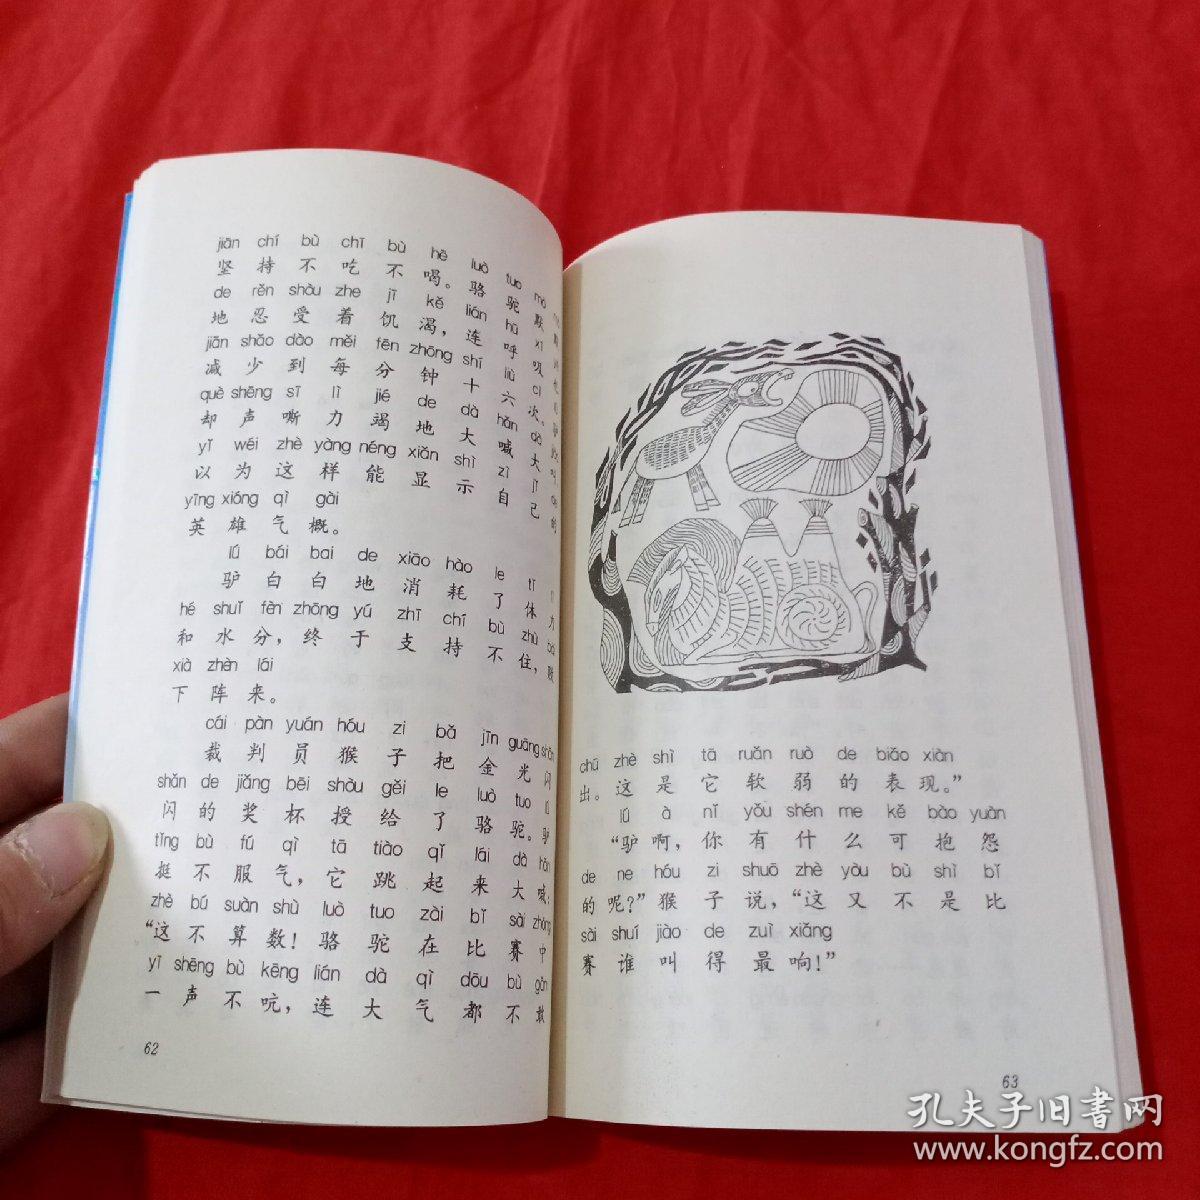 jiān chí bù chī bù hē luò tuo mò
坚持不吃不喝。骆驼默
de rěn shòu zhe jī kě lián hū xī
地忍受着饥渴，连呼吸
jiǎn shǎo dào měi fēn zhōng shí liù cì
减少到每分钟十六次。
què shēng sī lì jié de dà hǎn dà
却声嘶力竭地大喊大
yǐ wéi zhè yàng néng xiǎn shì zì jǐ de
以为这样能显示自己的
yīng xióng qì gài
英雄气概。
lǘ bái bai de xiāo hào le tǐ
驴白白地消耗了体力
hé shuǐ fèn zhōng yú zhī chí bù zhù bài
和水分，终于支持不住，败
xià zhèn lái
下阵来。
cái pàn yuán hóu zi bǎ jīn guāng shǎn
裁判员猴子把金光闪
shǎn de jiǎng bēi shòu gěi le luò tuo
闪的奖杯授给了骆驼。驴
tǐng bù fú qì tā tiào qǐ lái dà hǎn
挺不服气，它跳起来大喊：
zhè bú suàn shù luò tuo zài bǐ sài zhōng
“这不算数！骆驼在比赛中
yī shēng bù kēng lián dà qì dōu bù gǎn
一声不吭，连大气都不敢
62
chū zhè shì tā ruǎn ruò de biǎo xiàn
出。这是它软弱的表现。”
lǘ à nǐ yǒu shén me kě bào yuàn
“驴啊，你有什么可抱怨
de ne hóu zi shuō zhè yòu bù shì bǐ
的呢？”猴子说，“这又不是比
sài shuí jiào de zuì xiǎng
赛谁叫得最响！”
63
孔夫子旧书网
www.kongfz.com